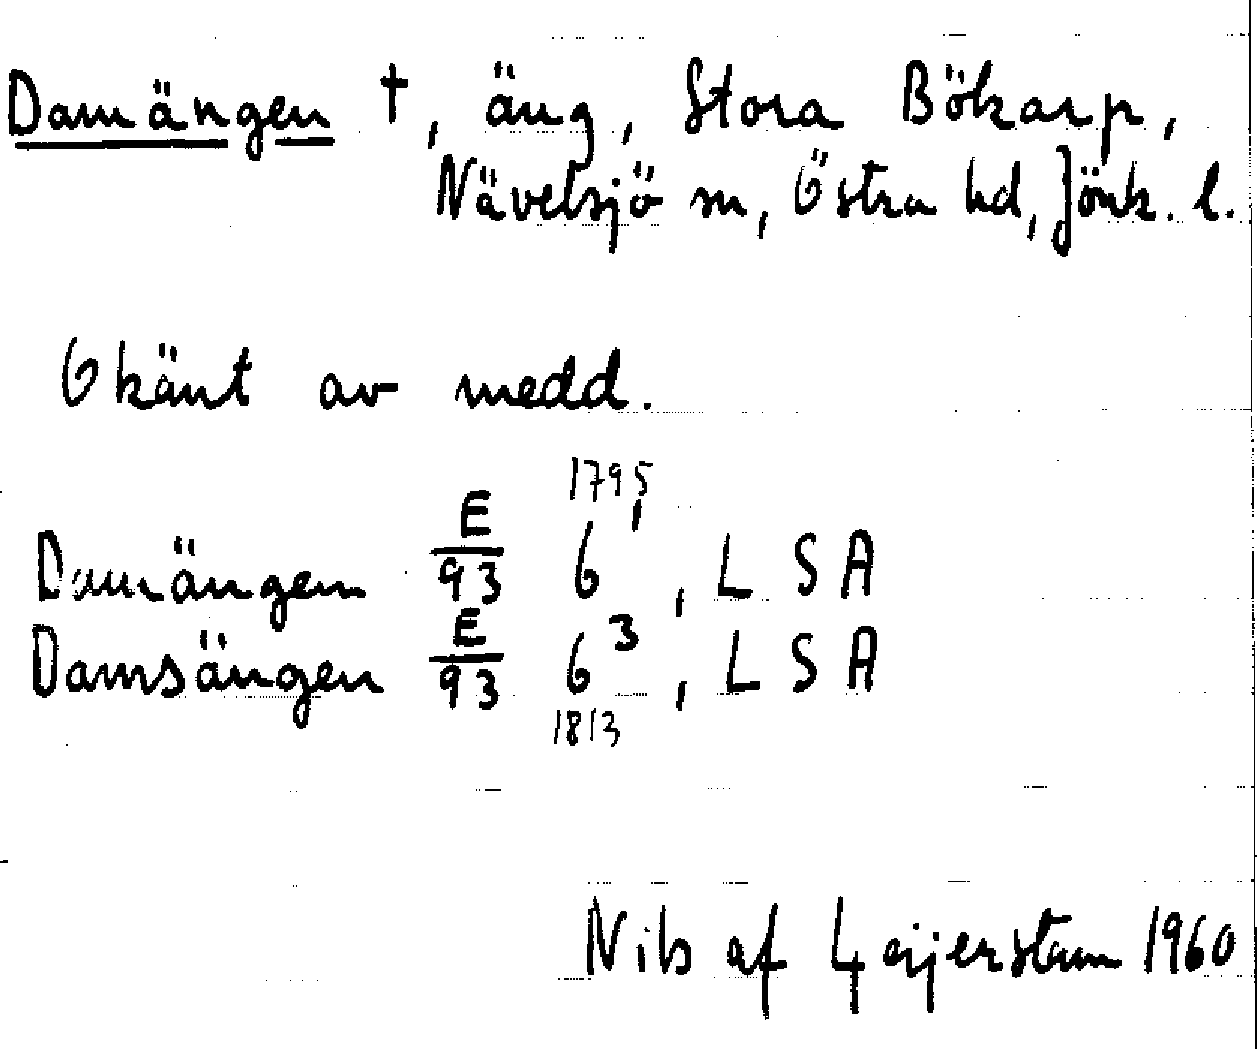 Damängen †, äng, Stora Bökarp,
Nävelsjö sn, Östra hd, Jönk. l.
Okänt av medd.
1795
Damängen E/93 6¹, LSA
Damsängen E/93 6³, LSA
1813
Nils af Geijerstam 1960